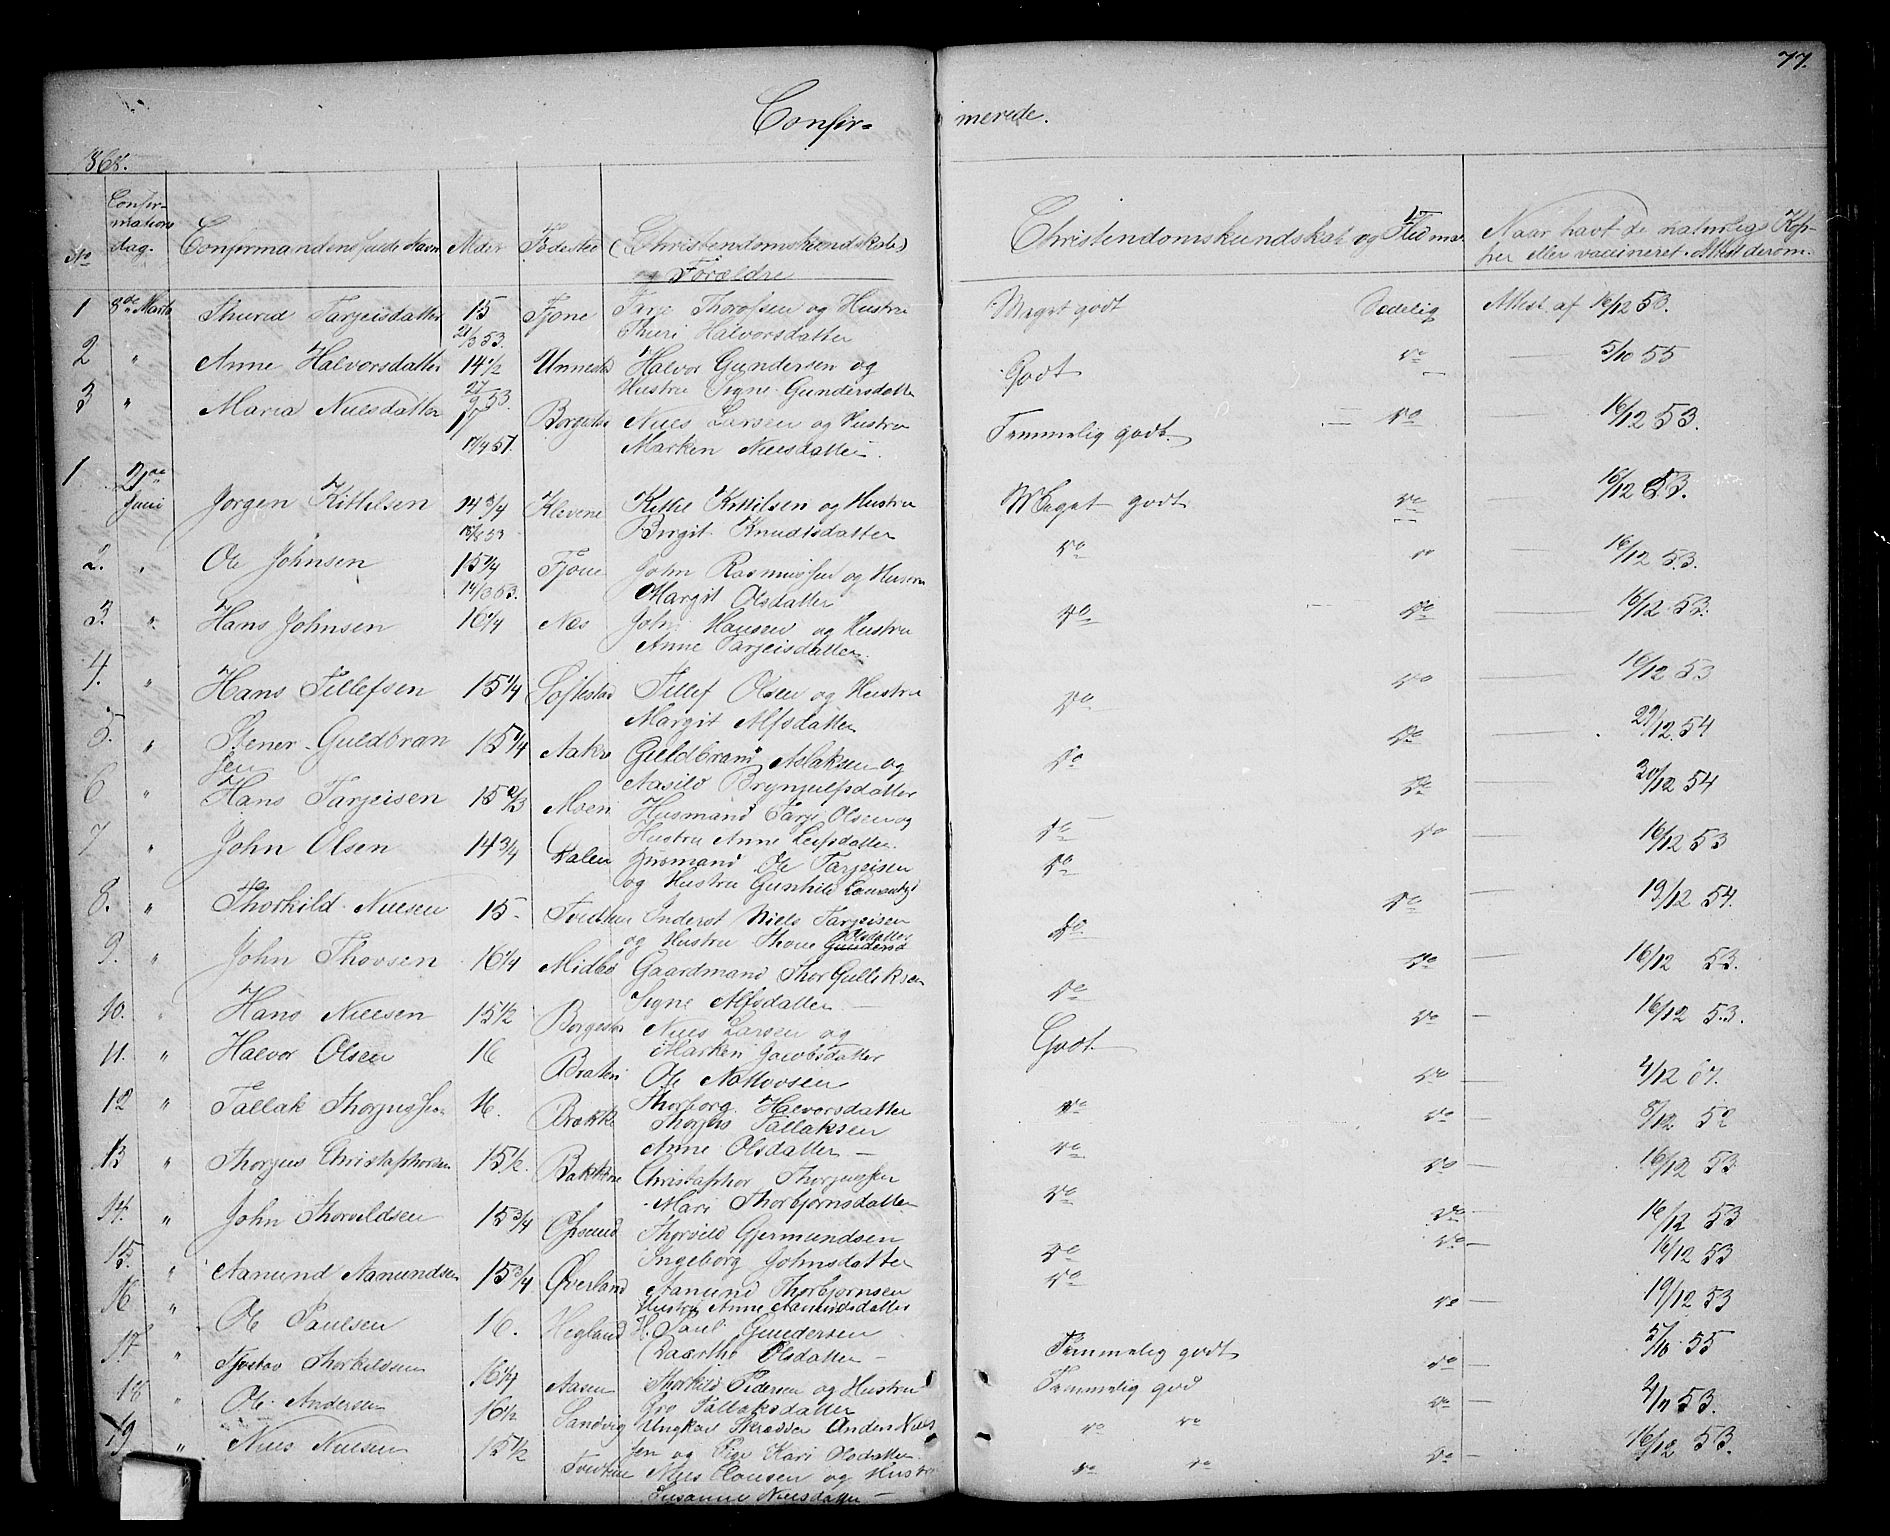 77.
Confir- merede.
868.
No Confir-mations dag. Confirmandens fulde Navn Alder Fødested (Christendomskundskab) og Forældre Christendomskundskab og Flid Naar havt de naturlige Kopper eller vaccineret. Attest derom.
1 8de Marts Thurid Tarjeisdatter 15 21/3 53. Fjone Tarje Thorossen og Hustru Thuri Halvorsdatter Meget godt Sedelig Attest af 16/12 53.
2 " Anne Halvorsdatter 14 1/2 Unnestad Halvor Gundersen og Hustru Signe Gundersdatter Godt do 5/10 55
3 " Maria Nielsdatter 17 Borgestad Niels Larsen og Hustru Marken Nielsdatter. Temmelig godt. do 16/12 53.
1 21de Juni Jorgen Kittelsen 14 3/4 Klevene Kittel Kittilsen og Hustru Birgit Knudtsdatter Meget godt do 16/12 53.
2. " Ole Johnsen 15 1/4 14/3 53. Fjone John Rasmussen og Hustru Margit Olsdatter do do 16/12 53.
3. " Hans Johnsen 16 1/4 Næs John Hansen og Hustru Anne Tarjeisdatter. do do 16/12 53.
4. " Hans Tellefsen 15 1/4 Softestad Tellef Olsen og Hustru Margit Alfsdatter do do 16/12 53
5. " Stener Guldbransen 15 1/4 Aakre Guldbrand Aslaksen og Aasild Brynjulfsdatter do do 29/12 54
6 " Hans Tarjeisen 15 2/3 Moen Husmand Tarje Olsen og Hustru Anne Leifsdatter. do do 30/12 54
7 " John Olsen 14 3/4 Dalen Husmand Ole Tarjeisen og Hustru Gunhild do do 16/12 53
8. " Thorkild Nielsen 15 Tveitene Inderst Niels Tarjeisen og Hustru Thone Olsdatter do do 19/12 54.
9. " John Thovsen 16 1/4 Midbø Gaardmand Thor Gulliksen Signe Alfsdatter do do 16/12 53.
10. " Hans Nielsen 15 1/2 Borgestad Niels Larsen og Marken Jacobsdatter Godt do 16/12 53.
11. " Halvor Olsen 16 Bratteri Ole Nottovsen Thorborg Halvorsdatter do do 4/12
12 " Tallak Thorjussen 16. Brække Thorjus Tallaksen Anne Olsdatter do do 8/12 52
13 " Thorjus Christophersen 15 1/2. Bakkene Christopher Thorjussen Mari Thorbjornsdatter do do 16/12 53
14. " John Thorvildsen 15 3/4 Øisund Thorvild Gjermundsen Ingeborg Johnsdatter do do 16/12 53
15. " Aanund Aanundsen 15 3/4 Øverland Aanund Thorbjornsen Hustru Anne Aanundsdatter do do 16/12 53
16 " Ole Paulsen 16. Hegland H. Paul Gundersen Daarthe Olsdatter Temmelig godt do 19/12 53
17. " Tjostov Thorkildsen 16 1/4 Aasen Thorkild Pedersen og Hustru Gro Tallaksdatter Temmelig god do 5/10 55
18 " Ole Andersen 16 1/2 Sandvig Ungkarl Skrædder Anders Nielssen og Pige Kari Olsdatter do do do 2/11 53.
19 " Niels Nielsen 15 1/2 Tveitene Niels Clausen og Hustru Susanne Nielsdatter do do do 16/12 53.